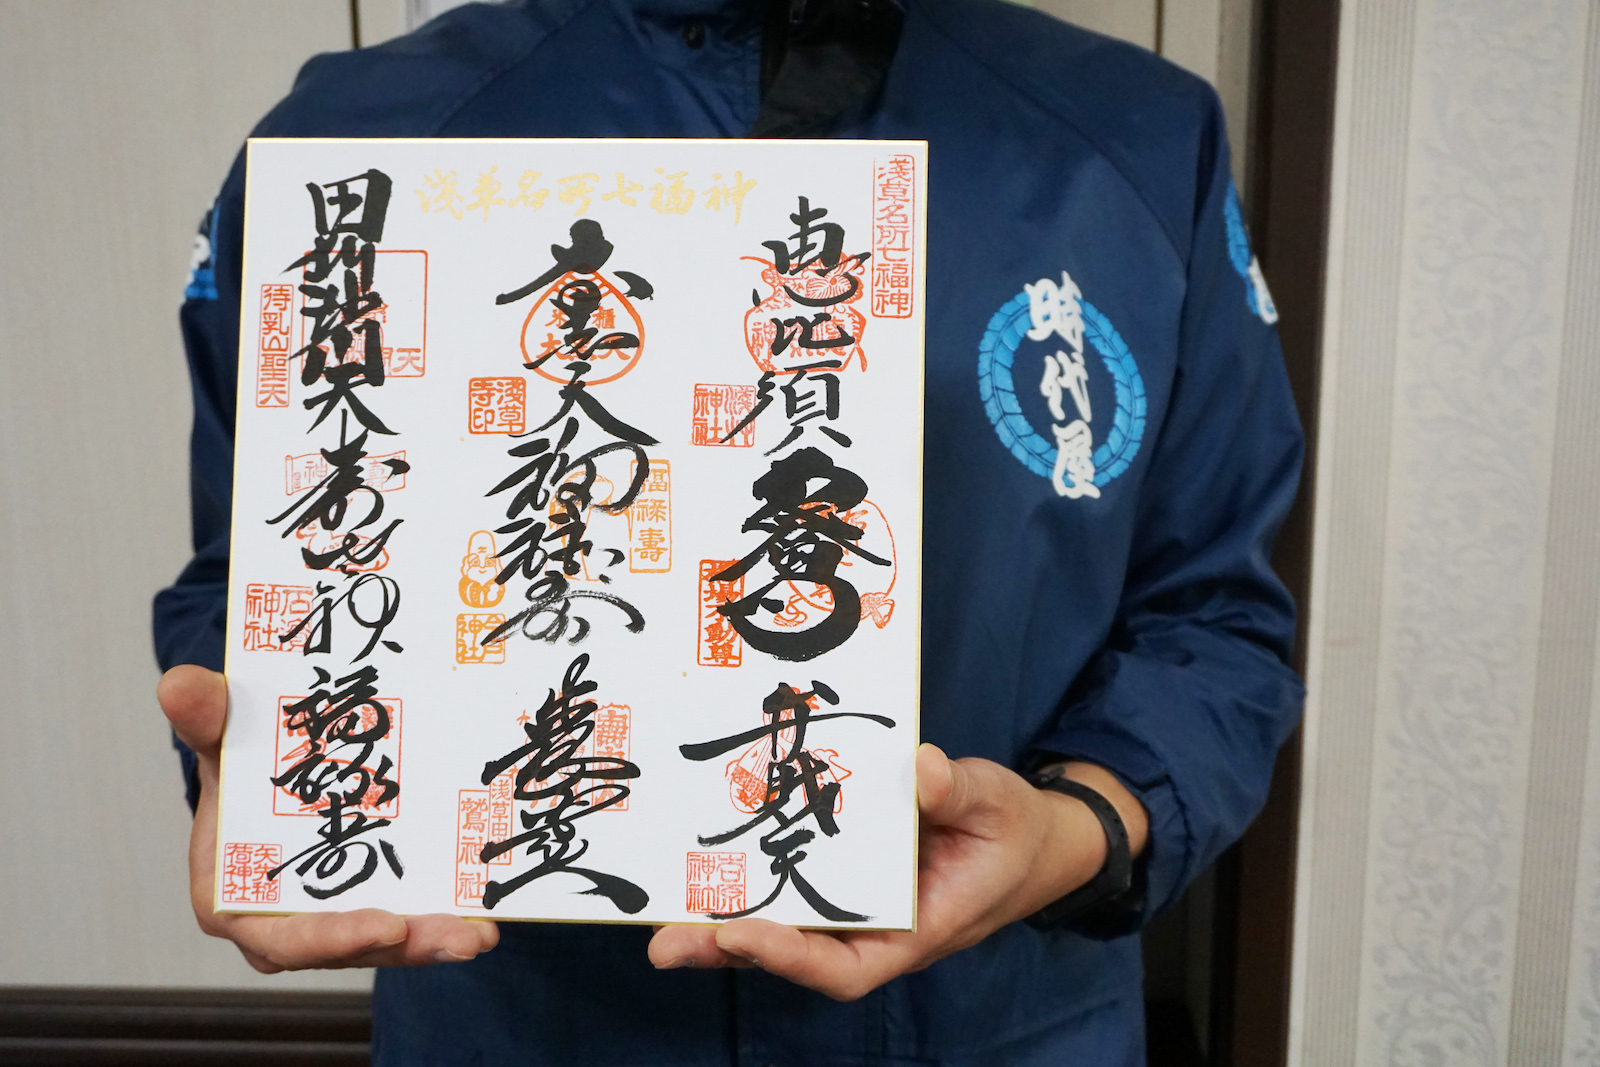 浅草名所七福神
淺草名所七福神
恵比須
淺草神社
大黒天
淺草寺印
毘沙門天
待乳山聖天
福禄寿
福禄壽
今戸神社
寿老神
石濱神社
神社
弁財天
吉原神社
寿老人
鷲神社
福禄寿
矢先稲荷神社
橋場不動尊
時代屋